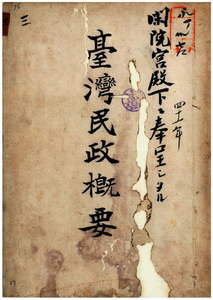 閑院宮殿下ニ奉呈シタル
四十一年
臺灣民政概要
三